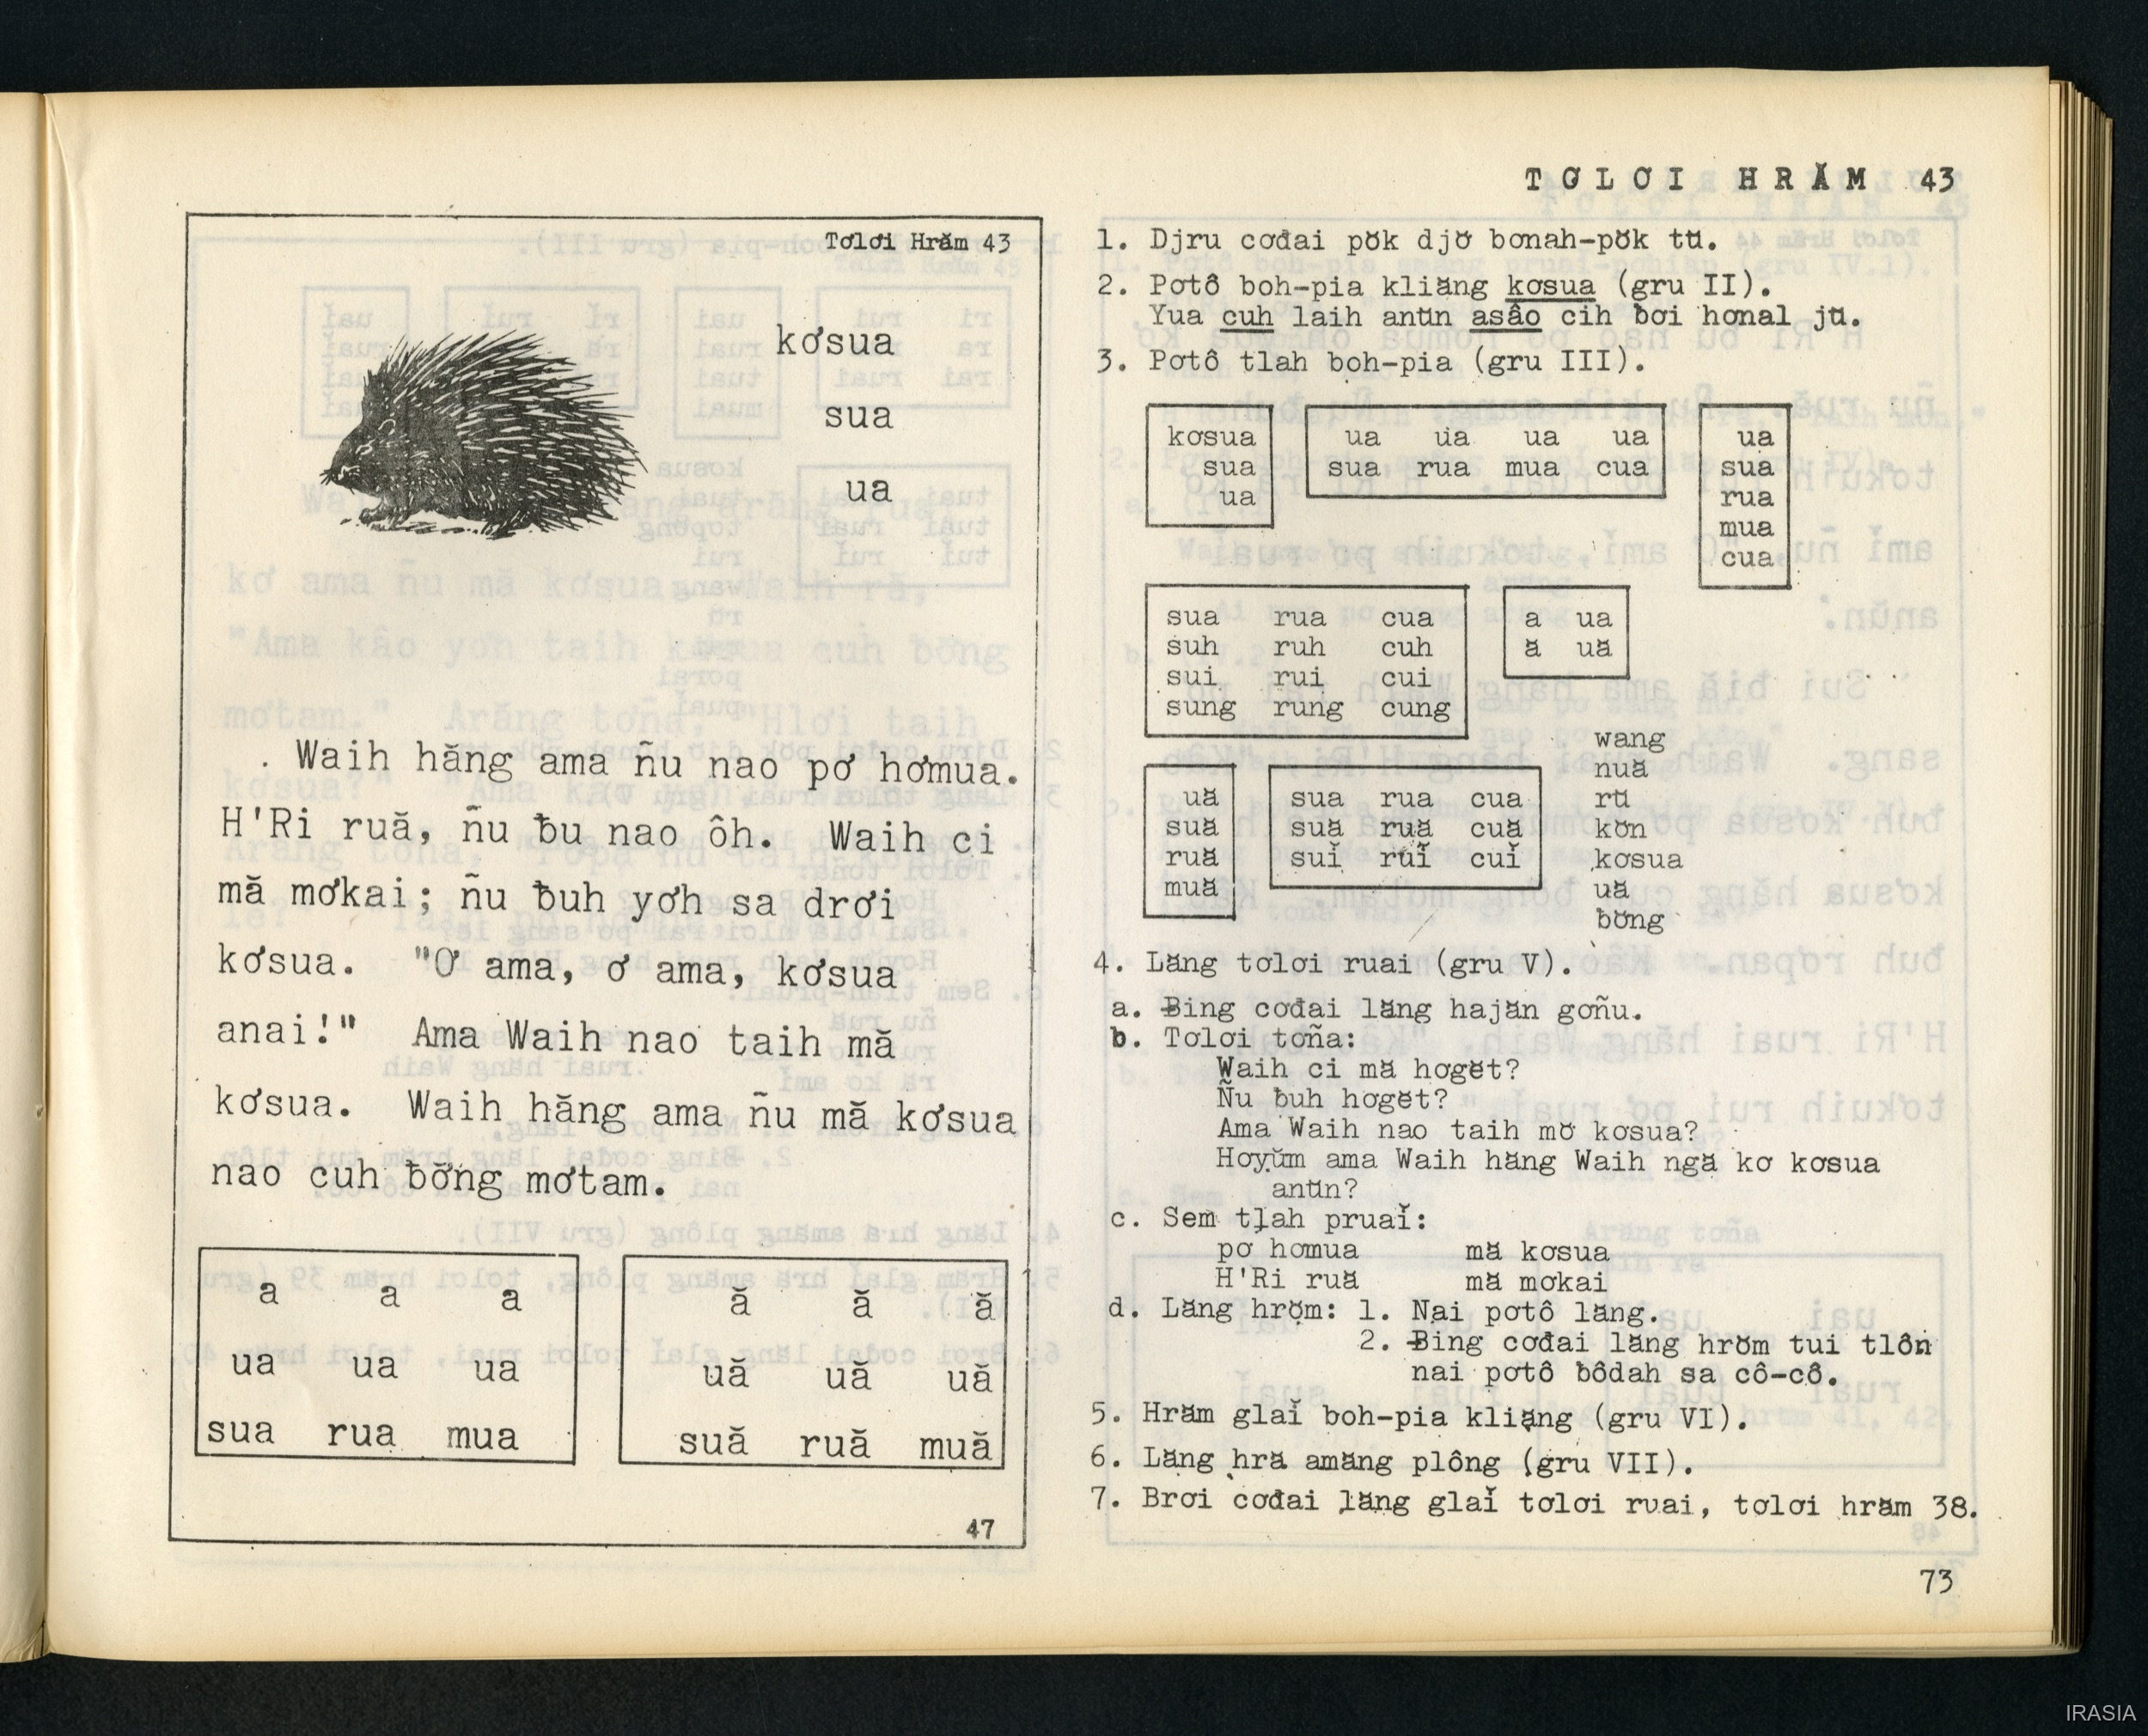 Tơlơi Hrăm 43
kơsua
sua
ua
Waih hăng ama ñu nao pơ hơmua.
H'Ri ruă, ñu ƀu nao ôh. Waih ci
mă mơkai; ñu ƀuh yơh sa drơi
kơsua. "Ơ ama, ơ ama, kơsua
anai!" Ama Waih nao taih mă
kơsua. Waih hăng ama ñu mă kơsua
nao cuh ƀơ̆ng mơtam.
a a a
ua ua ua
sua rua mua
ă ă ă
uă uă uă
suă ruă muă
47
TƠLƠI HRĂM 43
1. Djru cơđai pŏk djơ̆ bơnah-pŏk tŭ.
2. Pơtô boh-pia kliăng kơsua (gru II).
Yua cuh laih anŭn asâo cih ƀơi hơnal jŭ.
3. Pơtô tlah boh-pia (gru III).
kơsua
sua
ua
ua ua ua ua
sua rua mua cua
ua
sua
rua
mua
cua
sua rua cua
suh ruh cuh
sui rui cui
sung rung cung
a ua
ă uă
uă
suă
ruă
muă
sua rua cua
suă ruă cuă
suĭ ruĭ cuĭ
wang
nuă
rŭ
kơ̆n
kơsua
uă
ƀơ̆ng
4. Lăng tơlơi ruai (gru V).
a. Ƀing cơđai lăng hajăn gơñu.
b. Tơlơi tơña:
Waih ci mă hơgĕt?
Ñu ƀuh hơgĕt?
Ama Waih nao taih mơ̆ kơsua?
Hơyŭm ama Waih hăng Waih ngă kơ kơsua
anŭn?
c. Sem tlah pruaĭ:
pơ hơmua mă kơsua
H'Ri ruă mă mơkai
d. Lăng hrơ̆m: 1. Nai pơtô lăng.
2. Ƀing cơđai lăng hrơ̆m tui tlôn
nai pơtô ƀôdah sa cô-cô.
5. Hrăm glaĭ boh-pia kliăng (gru VI).
6. Lăng hră amăng plông (gru VII).
7. Brơi cơđai lăng glaĭ tơlơi ruai, tơlơi hrăm 38.
73
IRASIA